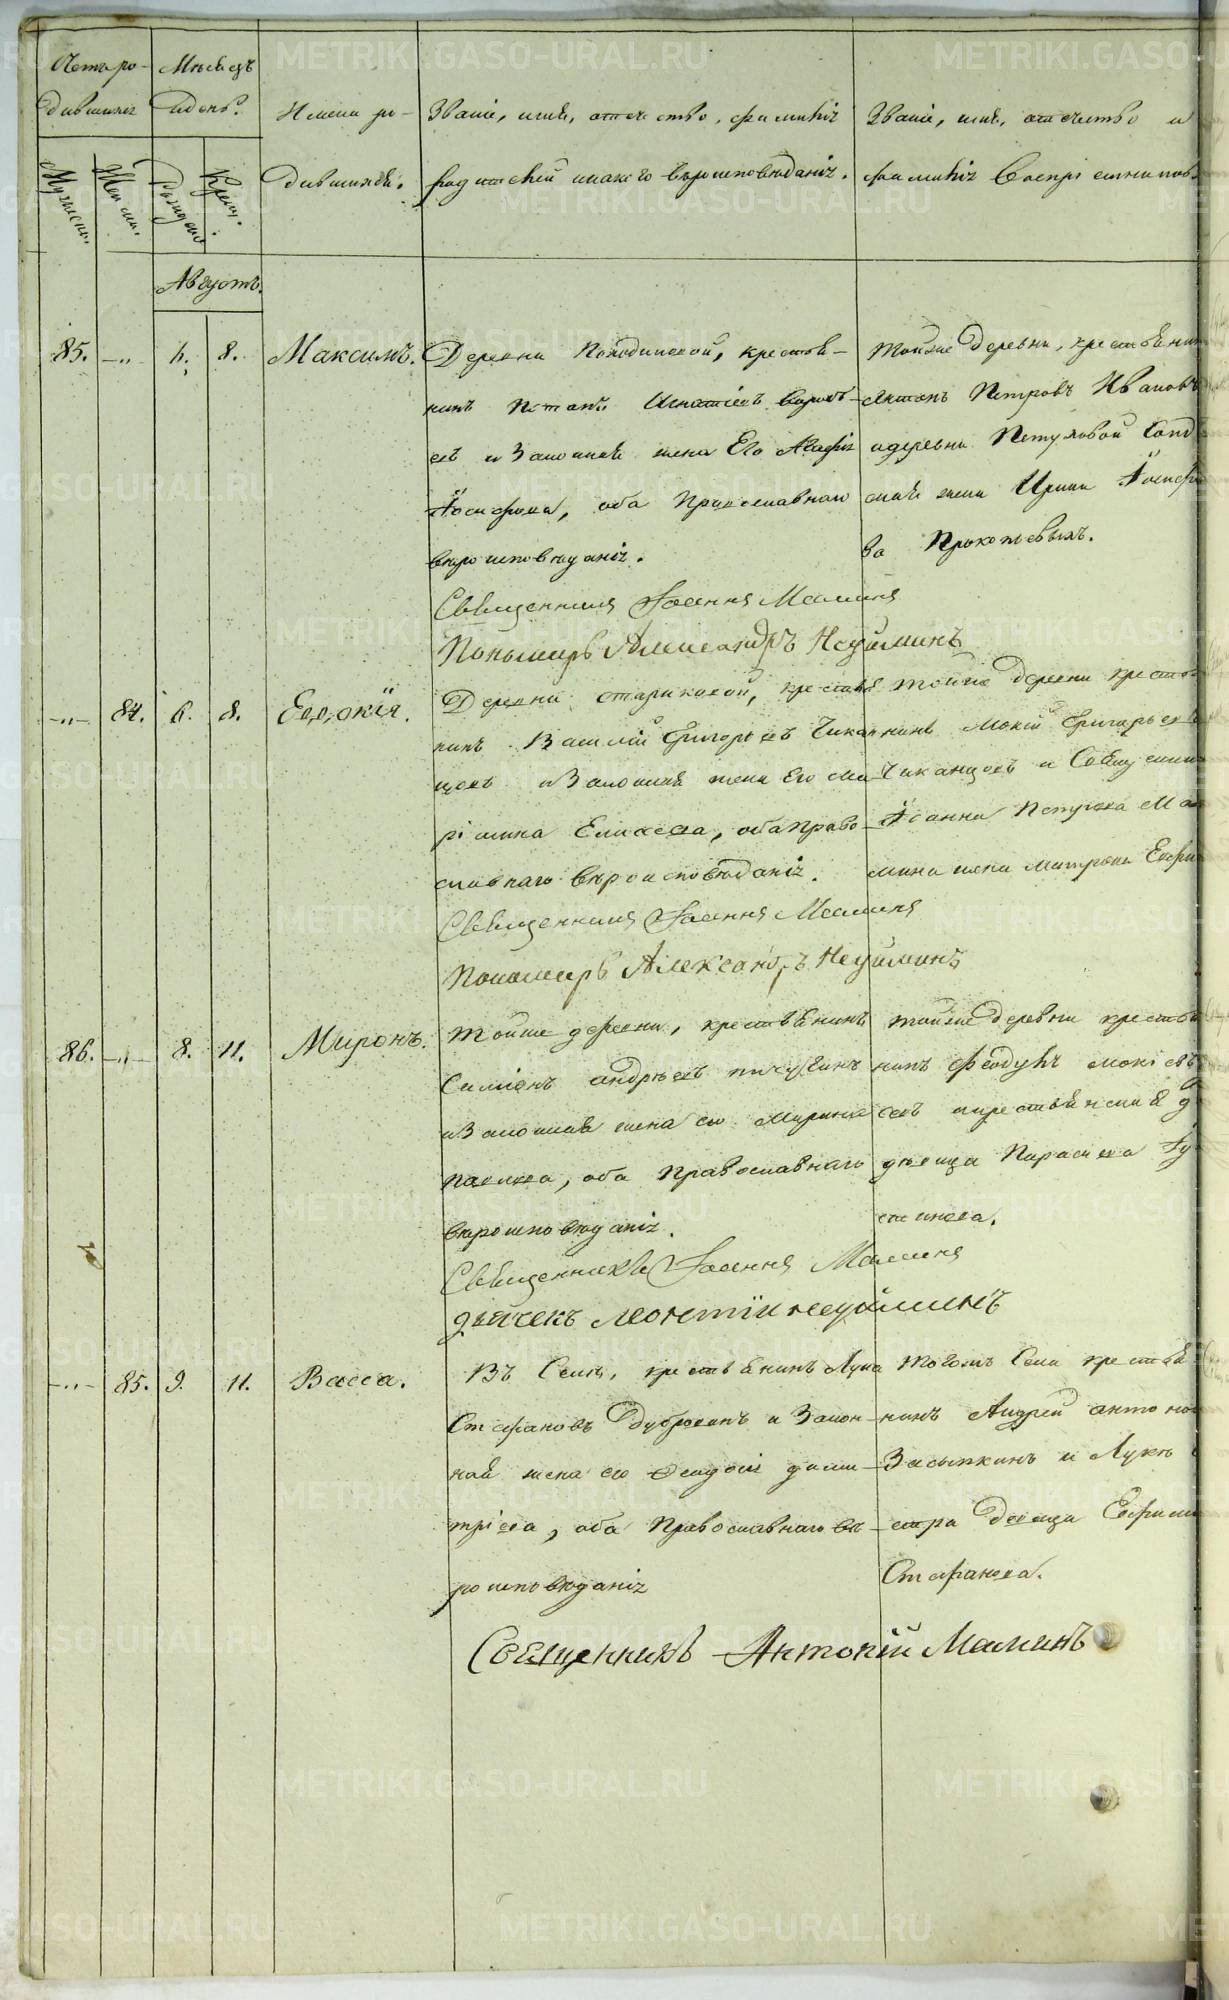 Счетъ ро-
дившихся
Мѣсяцъ
и день.
Имена ро-
дившихся.
Званіе, имя, отечество, фамилія
родителей и какого вѣроисповѣданія.
Званіе, имя, отечество и
фамилія Воспріемников
Мужеска. Женска. Рожденія Крещ.
Августъ.
85. -"- 6. 8. Максимъ.
Деревни крестья-
нинъ Игнатіевъ
и Законная жена Его Агафія
Іосифова, оба Православнаго
вѣроисповѣданія.
Тойже Деревни, крестьянин
Антонъ Петровъ Ивановъ
и деревни Петуховой
жена Ирина Іосифо
ва Прокопьевыхъ.
Священникъ Іоаннъ Маминъ
Пономарь Александръ Неуйминъ
-"- 84. 6. 8. Евдокія.
Деревни Стариковой, крестья
нинъ Василій Григорьевъ Чикан
цовъ и Законная жена Его Ма
рімина Елисѣева, оба Право-
славнаго вѣроисповѣданія.
тойже деревни кресть
нинъ Мокій Григорьев
Чиканцовъ и Священни
Іоанна Петрова Ма
мина жена Матрона Евфи
Священникъ Іоаннъ Маминъ
Пономарь Александръ Неуйминъ
86. -"- 8. 11. Миронъ.
Тойже деревни, крестьянинъ
Симіонъ Андрѣевъ Пичугинъ
и Законная жена его Марина
Павлова, оба Православнаго
вѣроисповѣданія.
тойже деревни крестья
нинъ Феодулъ Мокіевъ
и крестьянская д
дѣвица Параскева
стинова.
Священникъ Іоаннъ Маминъ
Дьячекъ Леонтій Неуйминъ
-"- 85. 9. 11. Васса.
Въ Селѣ, крестьянинъ Лука
Стефановъ Дубровинъ и Закон-
ная жена его Феодосія Дими-
тріева, оба Православнаго вѣ-
роисповѣданія
Тогожъ Села крестья
нинъ Андрей Антонов
Засыпкинъ и Луки
стра Девица Евфими
Стефанова.
Священникъ Антоній Маминъ
METRIKI.GASO-URAL.RU